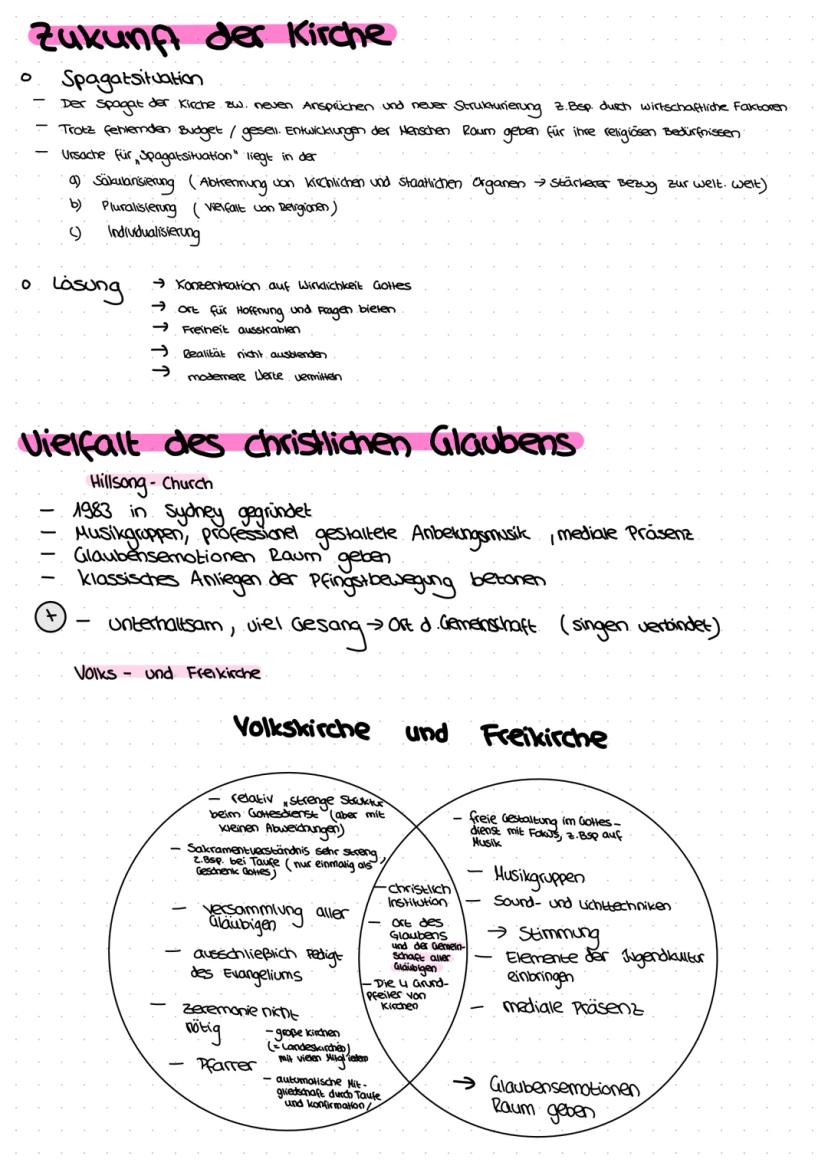 Zukunft der Kirche
o Spagatsituation
– Der Spagat der Kirche zw. neuen Ansprüchen und neuer Strukturierung z.Bsp. durch wirtschaftliche Faktoren
– Trotz fehlenden Budget / gesell. Entwicklungen der Menschen Raum geben für ihre religiösen Bedürfnissen
– Ursache für „Spagatsituation" liegt in der
a) Säkularisierung ( Abtrennung von kirchlichen und staatlichen Organen → Stärkerer Bezug zur welt. Welt)
b) Pluralisierung ( Vielfalt von Religionen)
c) Individualisierung
o Lösung → Konzentration auf Wirklichkeit Gottes
→ Ort für Hoffnung und Fragen bieten
→ Freiheit ausstrahlen
→ Realität nicht ausblenden
→ modernere Werte vermitteln
Vielfalt des christlichen Glaubens
Hillsong - Church
– 1983 in Sydney gegründet
– Musikgruppen, professionel gestaltete Anbetungsmusik , mediale Präsenz
– Glaubensemotionen Raum geben
– klassisches Anliegen der Pfingstbewegung betonen
+ – unterhaltsam, viel Gesang → Ort d. Gemeinschaft (singen verbindet)
Volks - und Freikirche
Volkskirche und Freikirche
– relativ „strenge Struktur
beim Gottesdienst (aber mit
kleinen Abweichungen)
– Sakramentverständnis sehr streng,
z.Bsp. bei Taufe ( nur einmalig als
Geschenk Gottes)
– Versammlung aller
Gläubigen
– ausschließlich Pedigt
des Evangeliums
– Zeremonie nicht
nötig
– Pfarrer
– große Kirchen
(= Landeskirche)
mit vielen Mitgliedern
– automatische Mit-
gliedschaft durch Taufe
und Konfirmation/
– christlich
Institution
– Ort des
Glaubens
und der Gemein-
schaft aller
Gläubigen
– Die 4 Grund-
pfeiler von
Kirchen
– freie Gestaltung im Gottes-
dienst mit Fokus, z.Bsp auf
Musik
– Musikgruppen
– Sound- und Lichttechniken
→ Stimmung
– Elemente der Jugendkultur
einbringen
– mediale Präsenz
→ Glaubensemotionen
Raum geben